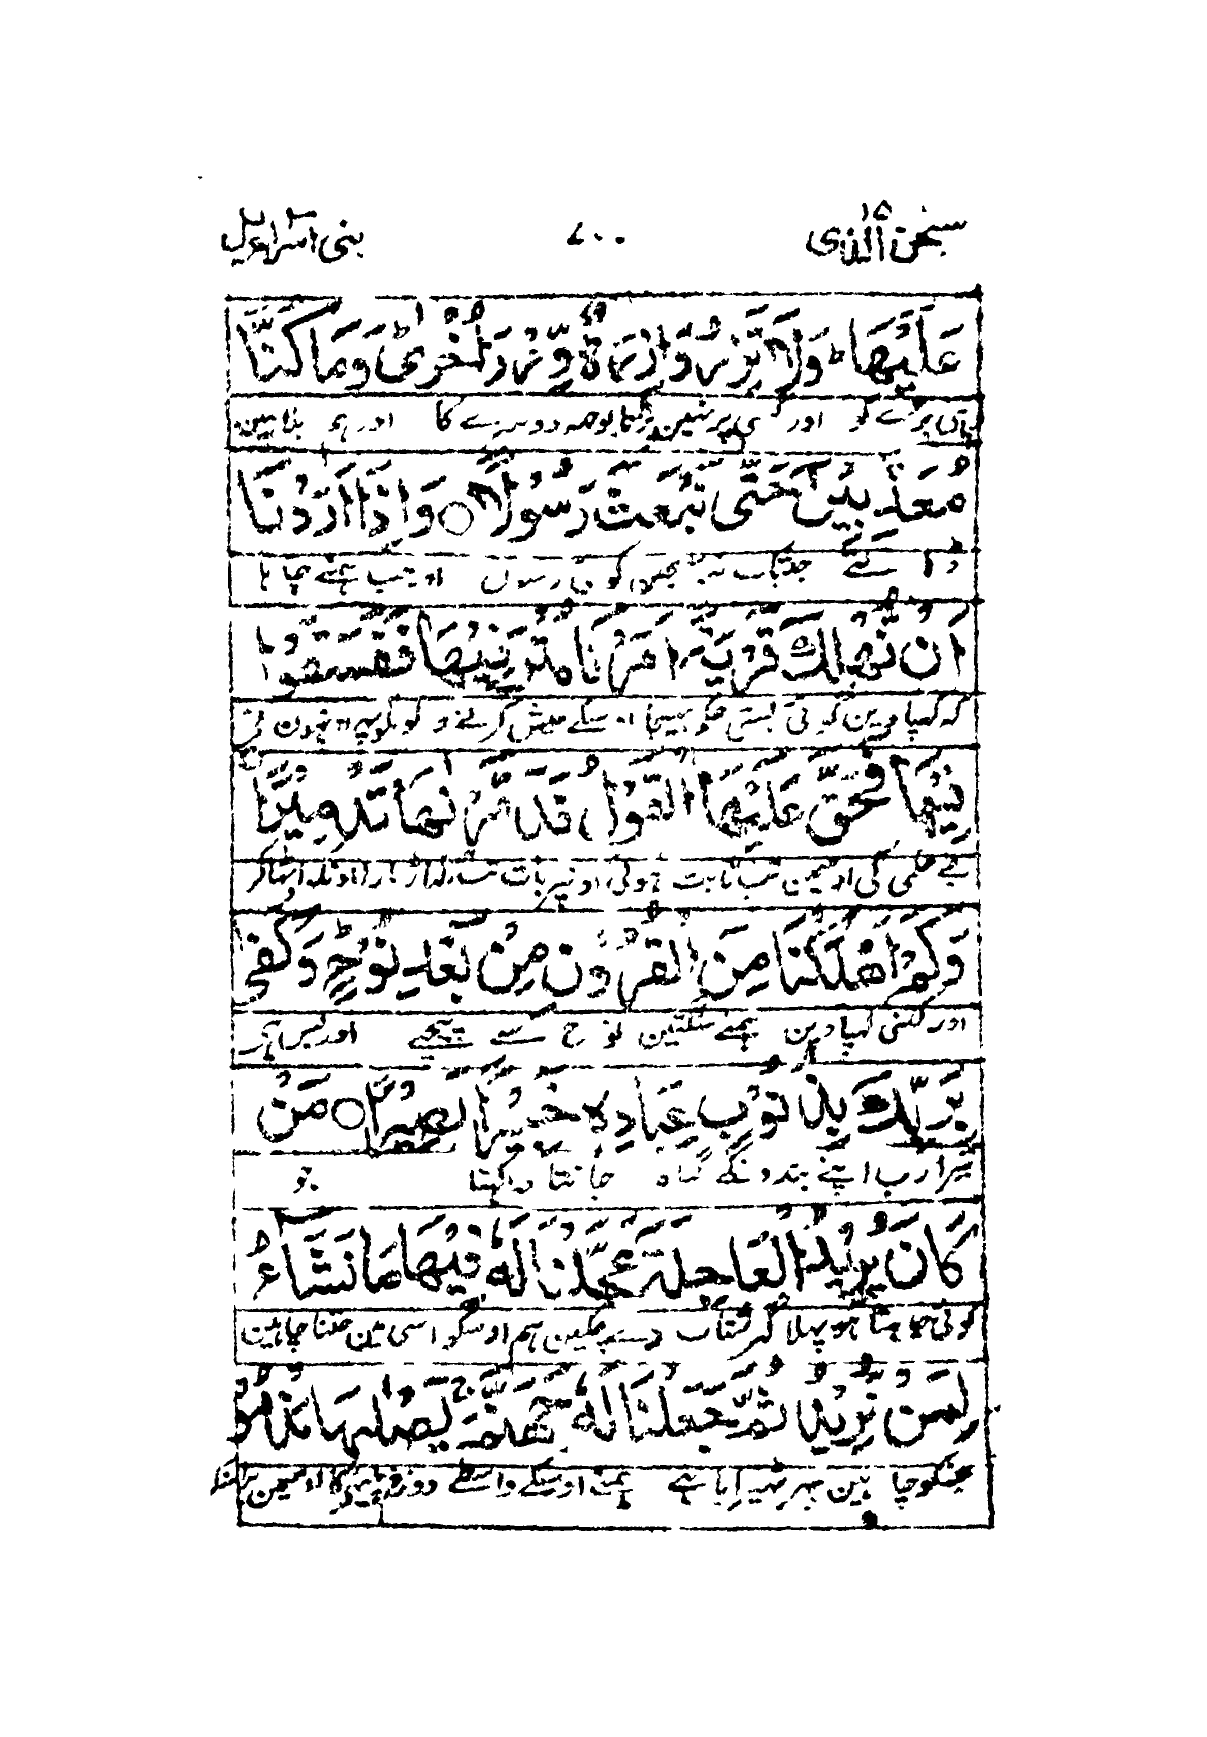 سبحن الذی ۱۵
۷۰۰
بنی اسراءیل
عَلَيْهَا ؕ وَلَا تَزِرُ وَازِرَةٌ وِّزْرَ اُخْرٰى ؕ وَمَا كُنَّا
اور کسی پر نہیں پڑتا بوجھ دوسرے کا اور ہم بلا نہیں
مُعَذِّبِيْنَ حَتّٰى نَبْعَثَ رَسُوْلًا ○ وَاِذَا اَرَدْنَا
ڈالتے جب تک نہ بھیجیں کوئی رسول اور جب ہمنے چاہا
اَنْ نُّهْلِكَ قَرْيَةً اَمَرْنَا مُتْرَفِيْهَا فَفَسَقُوْا
کہ کھپا دین کوئی بستی حکم بھیجا اوسکے عیش کرنے والونکو پھر اونھون نے
فِيْهَا فَحَقَّ عَلَيْهَا الْقَوْلُ فَدَمَّرْنٰهَا تَدْمِيْرًا
بے حکمی کی اوسمین تب ثابت ہوئی اونپر بات تب اوکھاڑ مارا اونکو اٹھا کر
وَكَمْ اَهْلَكْنَا مِنَ الْقُرُوْنِ مِنْۢ بَعْدِ نُوْحٍ ؕ وَكَفٰى
اور کتنی کھپا دین ہمنے سنگتین نوح سے پیچھے اور بس ہی
بِرَبِّكَ بِذُنُوْبِ عِبَادِهٖ خَبِيْرًۢا بَصِيْرًا ○ مَنْ
تیرا رب اپنے بندونکے گناہ جانتا دیکھتا جو
كَانَ يُرِيْدُ الْعَاجِلَةَ عَجَّلْنَا لَهٗ فِيْهَا مَا نَشَآءُ
کوئی چاہتا ہو پہلا گھر شتاب دے چکین ہم اوسکو اسی مین جتنا چاہین
لِمَنْ نُّرِيْدُ ثُمَّ جَعَلْنَا لَهٗ جَهَنَّمَ ۚ يَصْلٰىهَا مَذْمُوْ
جسکو چاہین پھر ٹھہرایا ہے ہمنے اوسکے واسطے دوزخ پیٹھیگا اوسمین